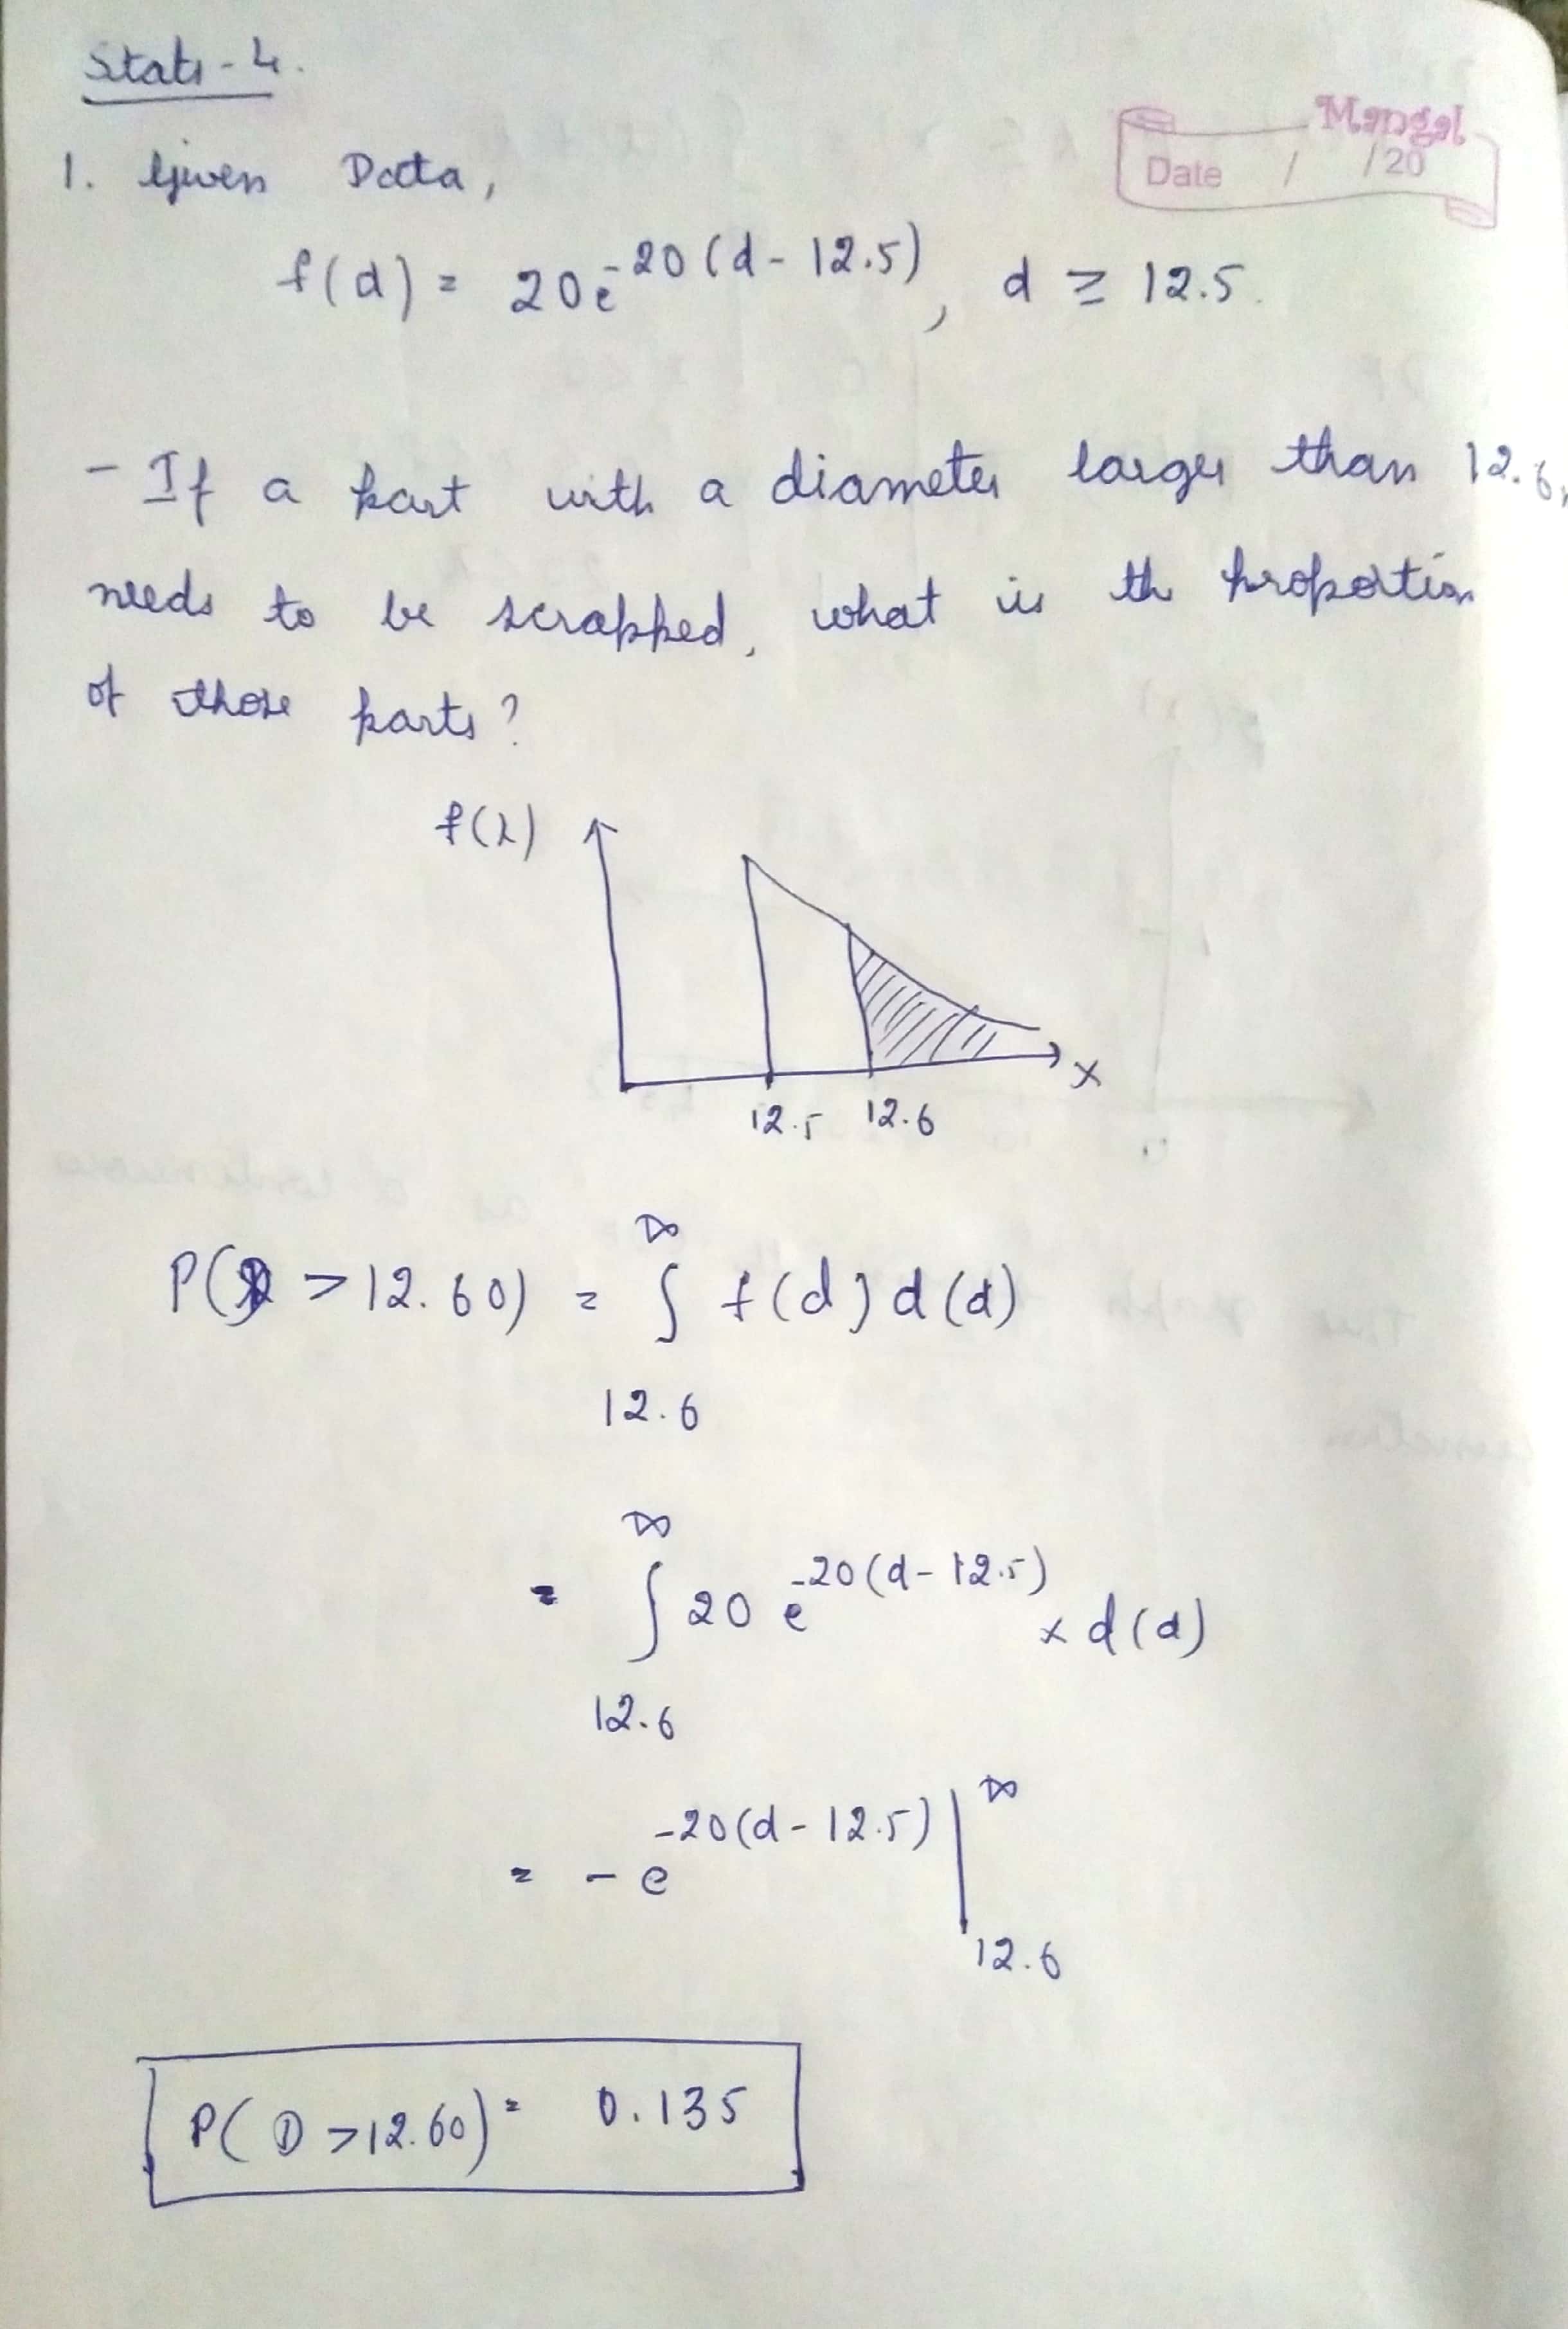 Stats-4.
Mangal
Date / /20
1. Given Data,
f(d) = 20e^-20(d-12.5), d ≥ 12.5.
- If a part with a diameter larger than 12.6
needs to be scrapped, what is th proportion
of those parts?
f(x)
x
12.5 12.6
P(D > 12.60) = ∫ f(d) d(d)
∞
12.6
∞
= ∫ 20 e^-20(d-12.5) × d(d)
12.6
= - e^-20(d-12.5) | ∞
12.6
P(D > 12.60) = 0.135